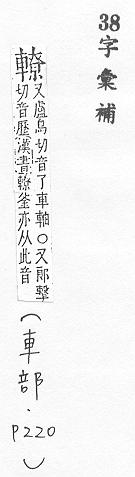 38字彙補
轑
又盧鳥切音了車軸○又郎擊
切音歷漢書轑釜亦从此音
(車部.
P220)